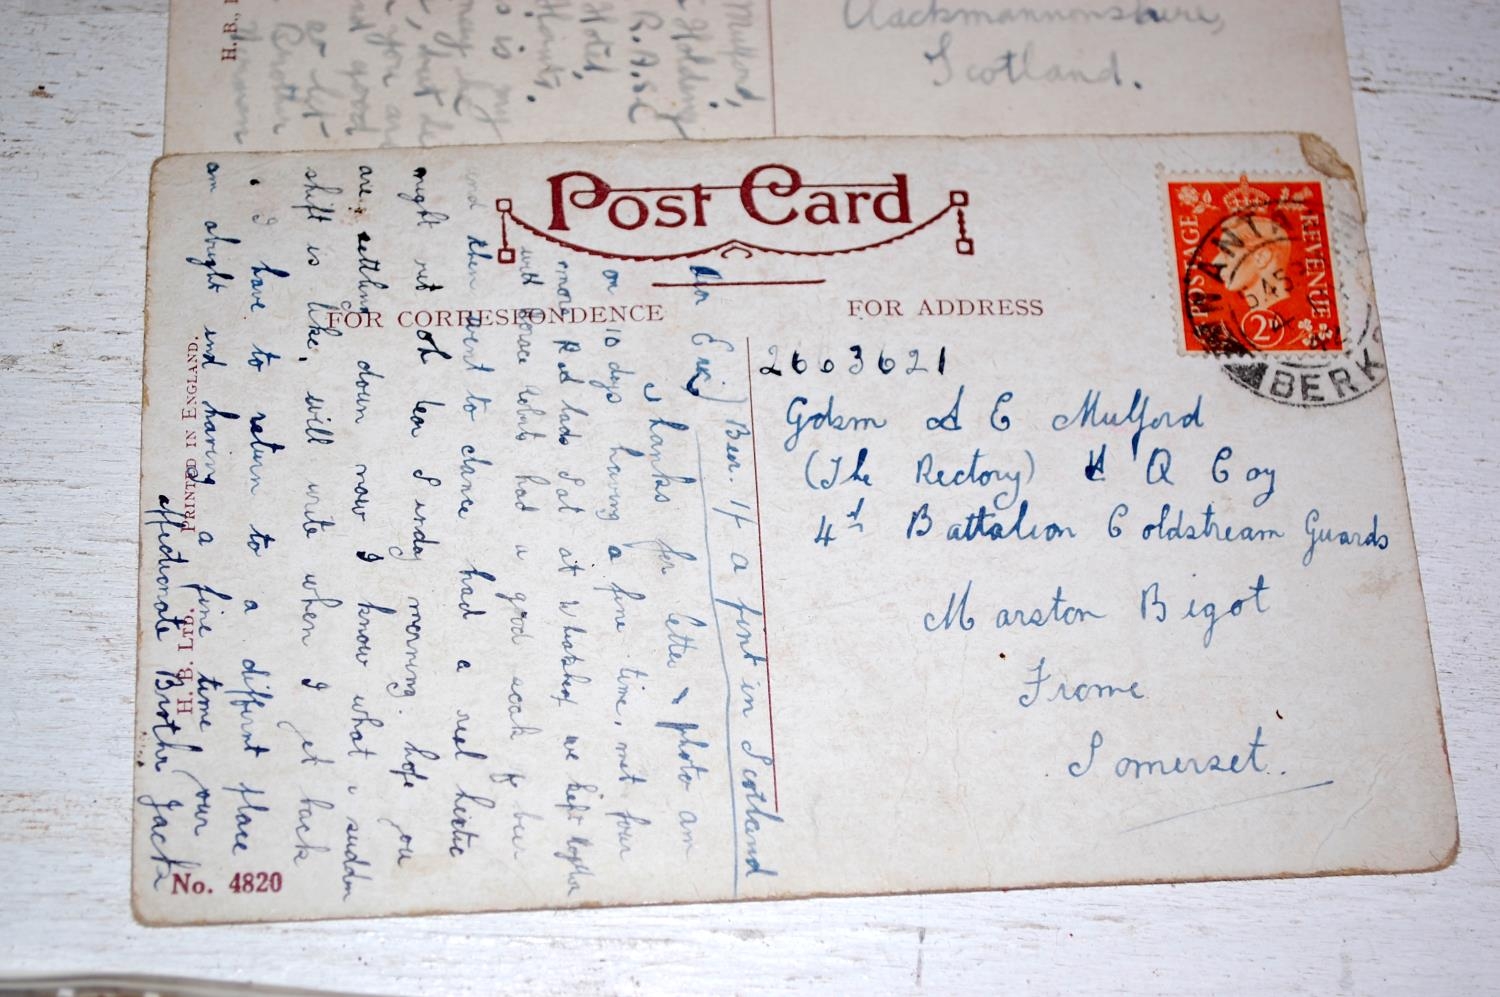 Mulford,
Holding
R.A.S.C
Hotel,
is my
may be
, but de
you are
nd good
Brother
Norman
H.B.,
Clackmannonshire,
Scotland.
POST CARD
FOR CORRESPONDENCE
FOR ADDRESS
POSTAGE
REVENUE
2D
WANTA
BERKS
2663621
Gdsm A E Mulford
(The Rectory) H Q Coy
4th Battalion Coldstream Guards
Marston Bigot
Frome
Somerset.
Beer. 1/- a pint in Scotland
Dear Eric)
Thanks for letter & photo am
on 10 days having a fine time, met four
more Red lads Sat at we kept together
with had a good soak of beer
and then went to dance had a real hectic
night not oh dear Sunday morning. hope you
are settling down now I know what a sudden
shift is like, will write when I get back
. I have to return to a differnt place
am alright and having a fine time your
affectionate Brother Jack
PRINTED IN ENGLAND.
H. B. LTD.
No. 4820